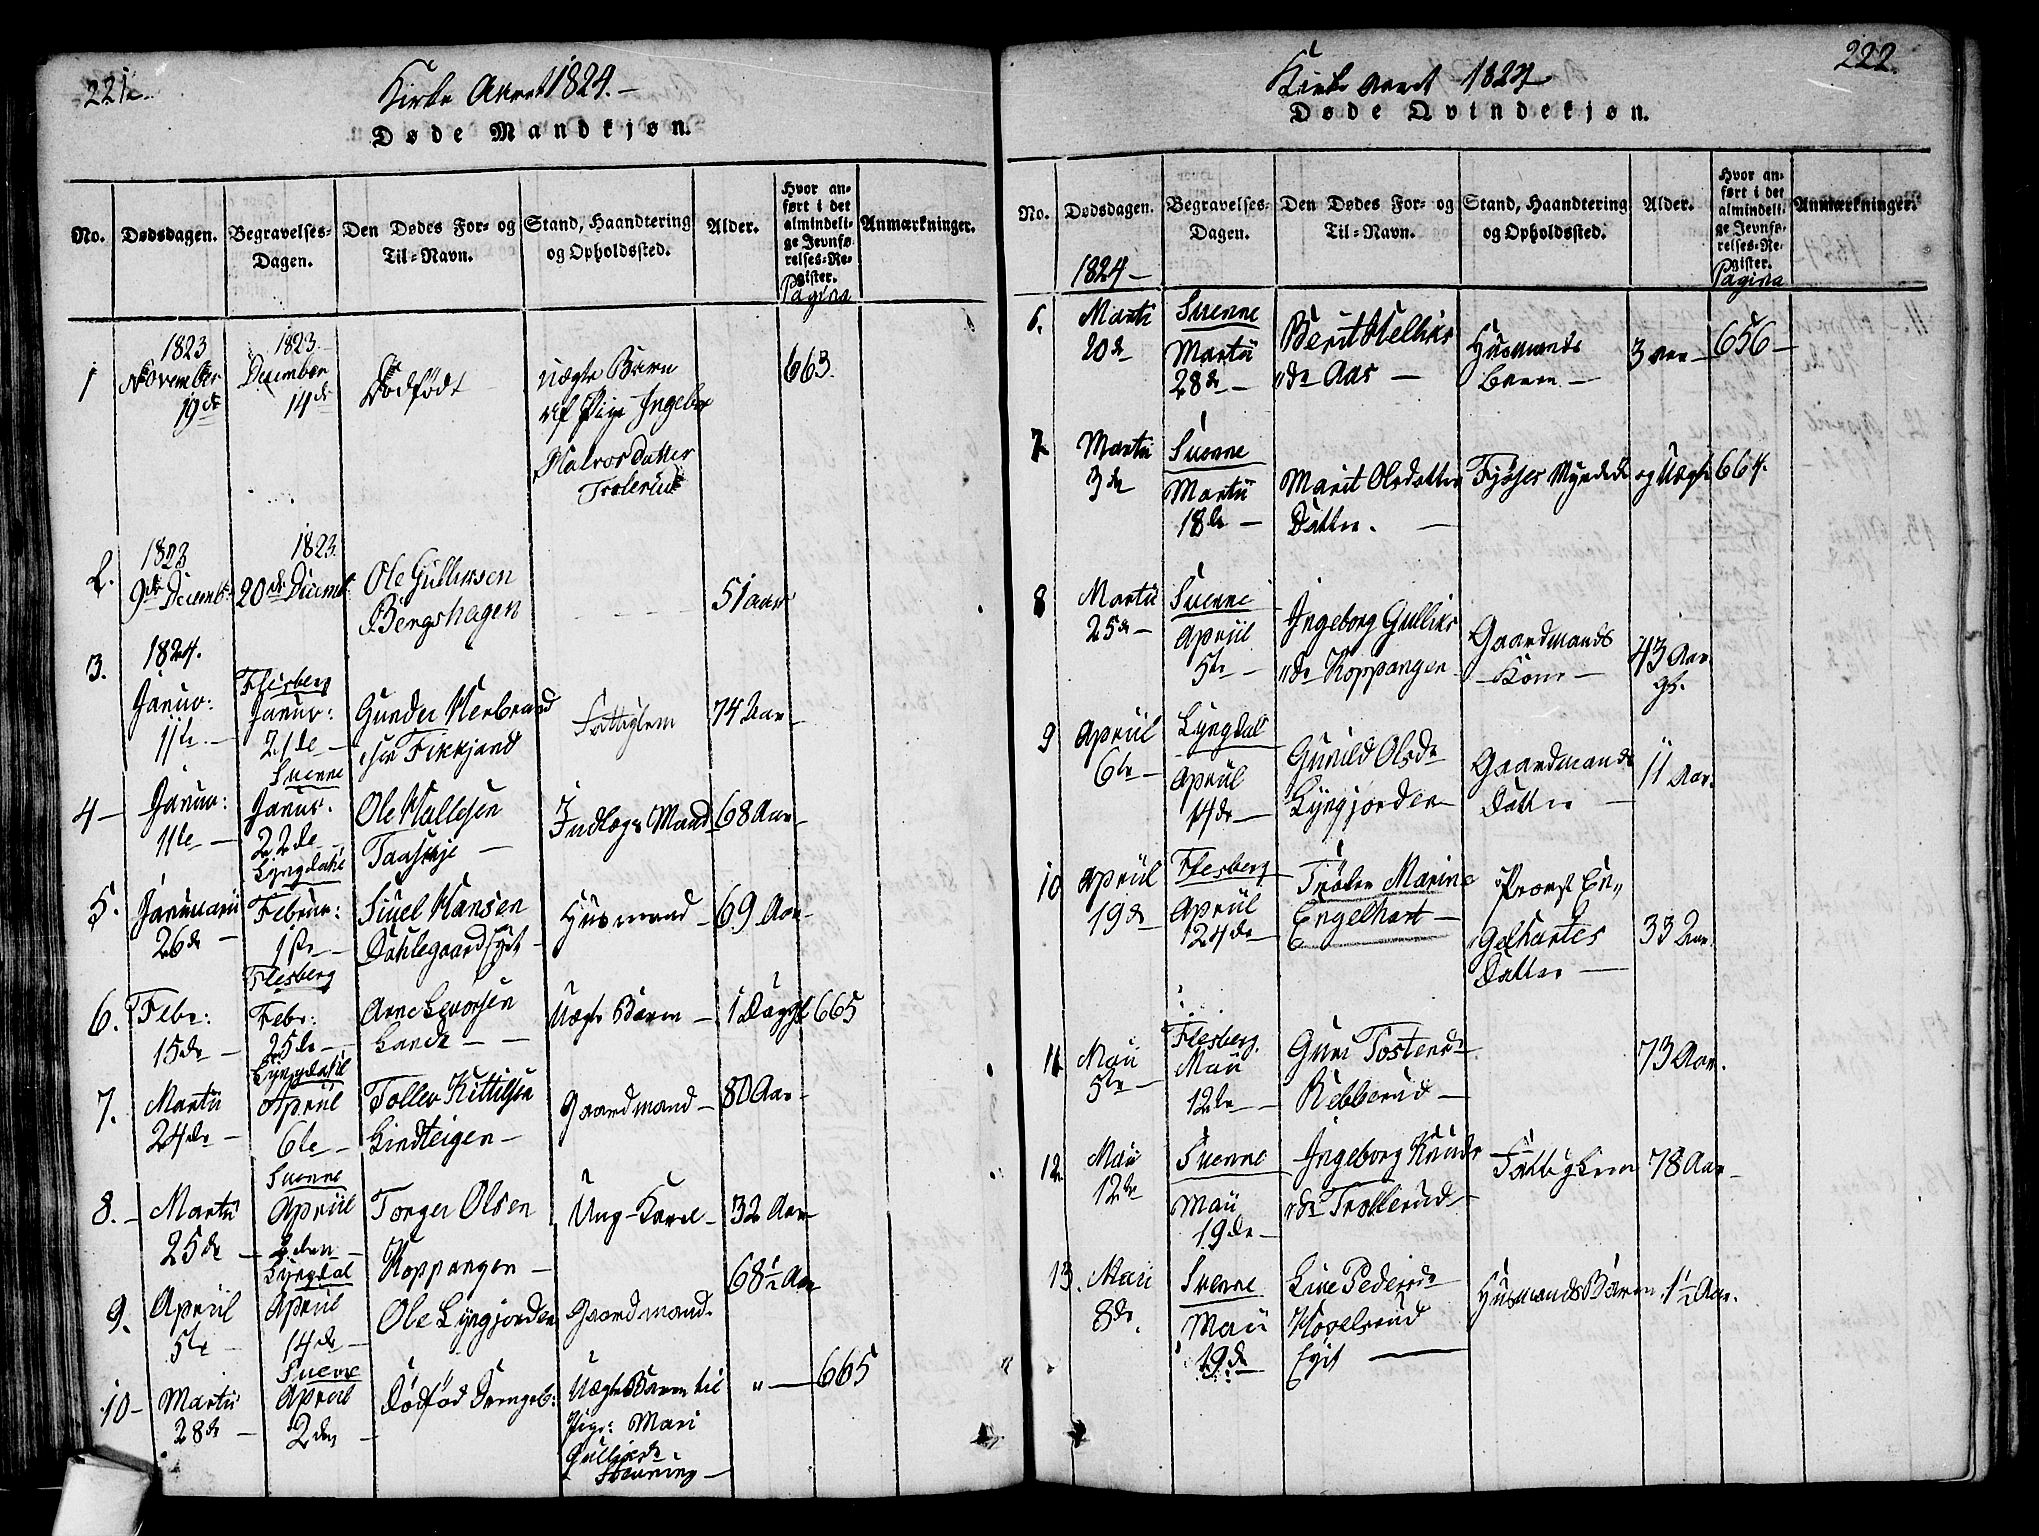 221.
Kirke Aaret 1824.
Døde Mandkjøn.
No.
Dødsdagen.
Begravelses-
Dagen.
Den Dødes For- og
Til-Navn.
Stand, Haandtering
og Opholdssted.
Alder.
Hvor an-
ført i det
almindeli-
ge Jevnfø-
relses-Re-
gister.
Pagina
Anmærkninger.
1
1823
November
19de
1823
December
14de
Dødfødt
uægte Barn
af Pige Ingebor
Halvorsdatter
Trolerud
663.
2.
1823
9de Decemb:
1823.
20de Decemb:
Ole Gulliksen
Bergshagen
51 aar
3.
1824.
Januar:
11te
Flesberg
Januar:
21de
Gunder Herbrand
sen Fikkjand
Fattiglem
74 Aar
4
Januar:
11te
Svenne
Januar.
22de
Ole Hallesen
Indlægs Mand
68 Aar
5.
Januarii
26de
Lyngdahl
Februar:
1ste
Siuel Hansen
Dahlegaardsejet
Husmand
69 Aar
6.
Febr:
15de
Flesberg
Febr:
25de
Arne Levorsen
Lande
Uægte Barn
1 Dag gl
665
7.
Martii
24de
Lyngdahl
Apriil
6te
Tollev Kittilsen
Lindteigen
Gaardmand
80 Aar
8.
Martii
25de
Svenne
Apriil
Torger Olsen
Koppangen
Ung-Karl
32 Aar
9.
Apriil
5te
Lyngdal
Apriil
14de
Ole Lyngjorden
Gaardmand.
68½ Aar
10
Martii
28de
Svenne
Apriil
2den
Dødfød Drengeb:
Uægte Barn til
Pige: Mari
Gulliksda
"
665
222.
Kirke Aaret 1824
Døde Qvindekjøn.
No.
Dødsdagen.
Begravelses-
Dagen.
Den Dødes For- og
Til-Navn.
Stand, Haandtering
og Opholdssted.
Alder.
Hvor an-
ført i det
almindeli-
ge Jevnfø-
relses-Re-
gister.
Pagina
Anmærkninger.
1824
6.
Martii
20de
Svenne
Martii
28de
Berit Helliks
da Aas
Husmands
Barn
3 Aar
656
7.
Martii
3de
Svenne
Martii
18de
Marit Olsdatter
Datter.
664.
8
Martii
25de
Svenne
Apriil
5te
Ingeborg Gulliks
da Koppangen
Gaardmands
Kone
43 Aar
gl.
9
Apriil
6te
Lyngdal
Apriil
14de
Gunild Olsda
Lyngjorden
Gaardmands
Datter
11 Aar
10
Apriil
19de
Flesberg
Apriil
24de
Frøken Marine
Engelhart
Provst En-
gelhartes
Datter
33 Aar
11
Maii
5te
Flesberg
Maii
12te
Guni Tostensda
73 Aar.
12.
Maii
12te
Svenne
Maii
19de
Ingeborg Knuds
da Trollerud
Fattiglem
78 Aar
13.
Maii
8de
Svenne
Maii
19de
Live Pedersda
Hovelsrud
Eyet
Husmands Barn
1½ Aar.